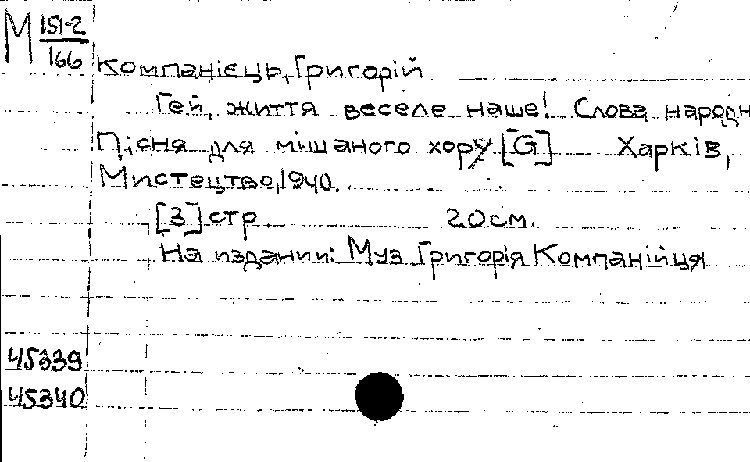 М 151-2
166
Компанієць, Григорій
Гей, життя веселе наше! Слова народн
Пісня для мішаного хору [G] Харків,
Мистецтво, 1940.
[3] стр 20 см.
На издании: Муз Григорія Компанійця
45339
45340